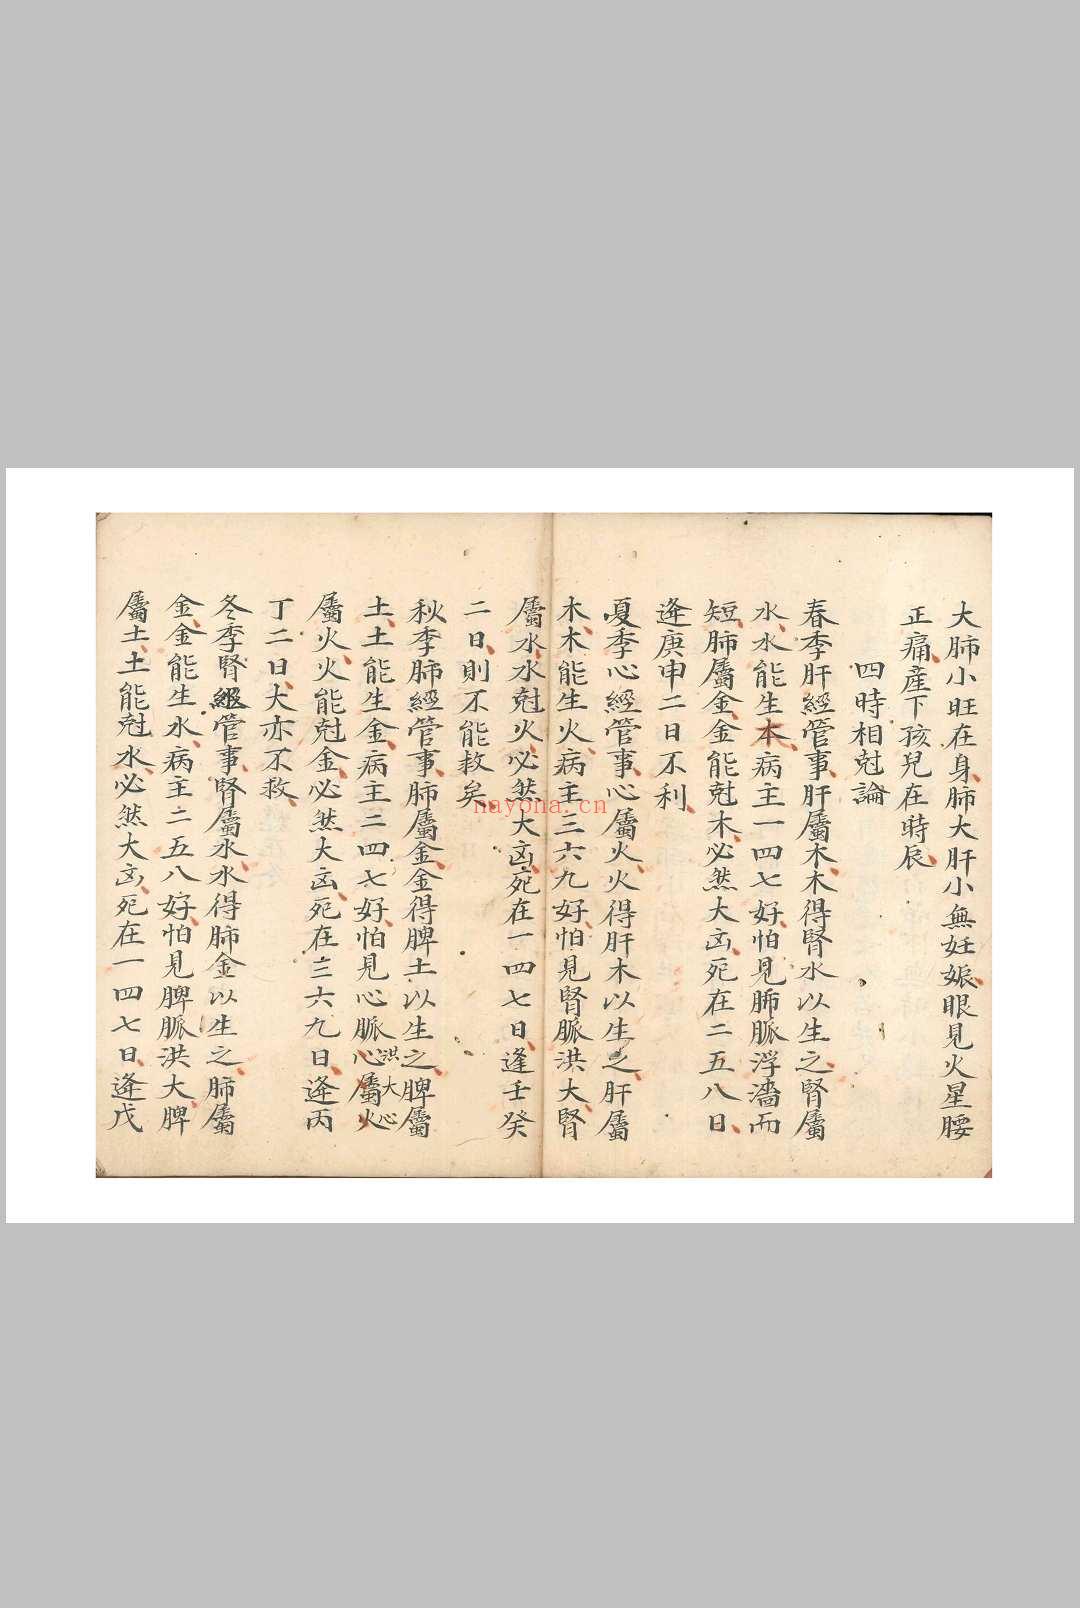 大肺小旺在身肺大肝小無妊娠眼見火星腰
正痛產下孩兒在時辰
四時相尅論
春季肝經管事肝屬木木得腎水以生之腎屬
水水能生木病主一四七好怕見肺脈浮濇而
短肺屬金金能尅木必然大凶死在二五八日
逄庚申二日不利
夏季心經管事心屬火火得肝木以生之肝屬
木木能生火病主三六九好怕見腎脈洪大腎
屬水水尅火必然大凶死在一四七日逢壬癸
二日則不能救矣
秋季肺經管事肺屬金金得脾土以生之脾屬
土土能生金病主二四七好怕見心脈洪大心心屬火
屬火火能尅金必然大凶死在三六九日逄丙
丁二日大亦不救
冬季腎經管事腎屬水水得肺金以生之肺屬
金金能生水病主二五八好怕見脾脈洪大脾
屬土土能尅水必然大凶死在一四七日逄戊
nayona.cn